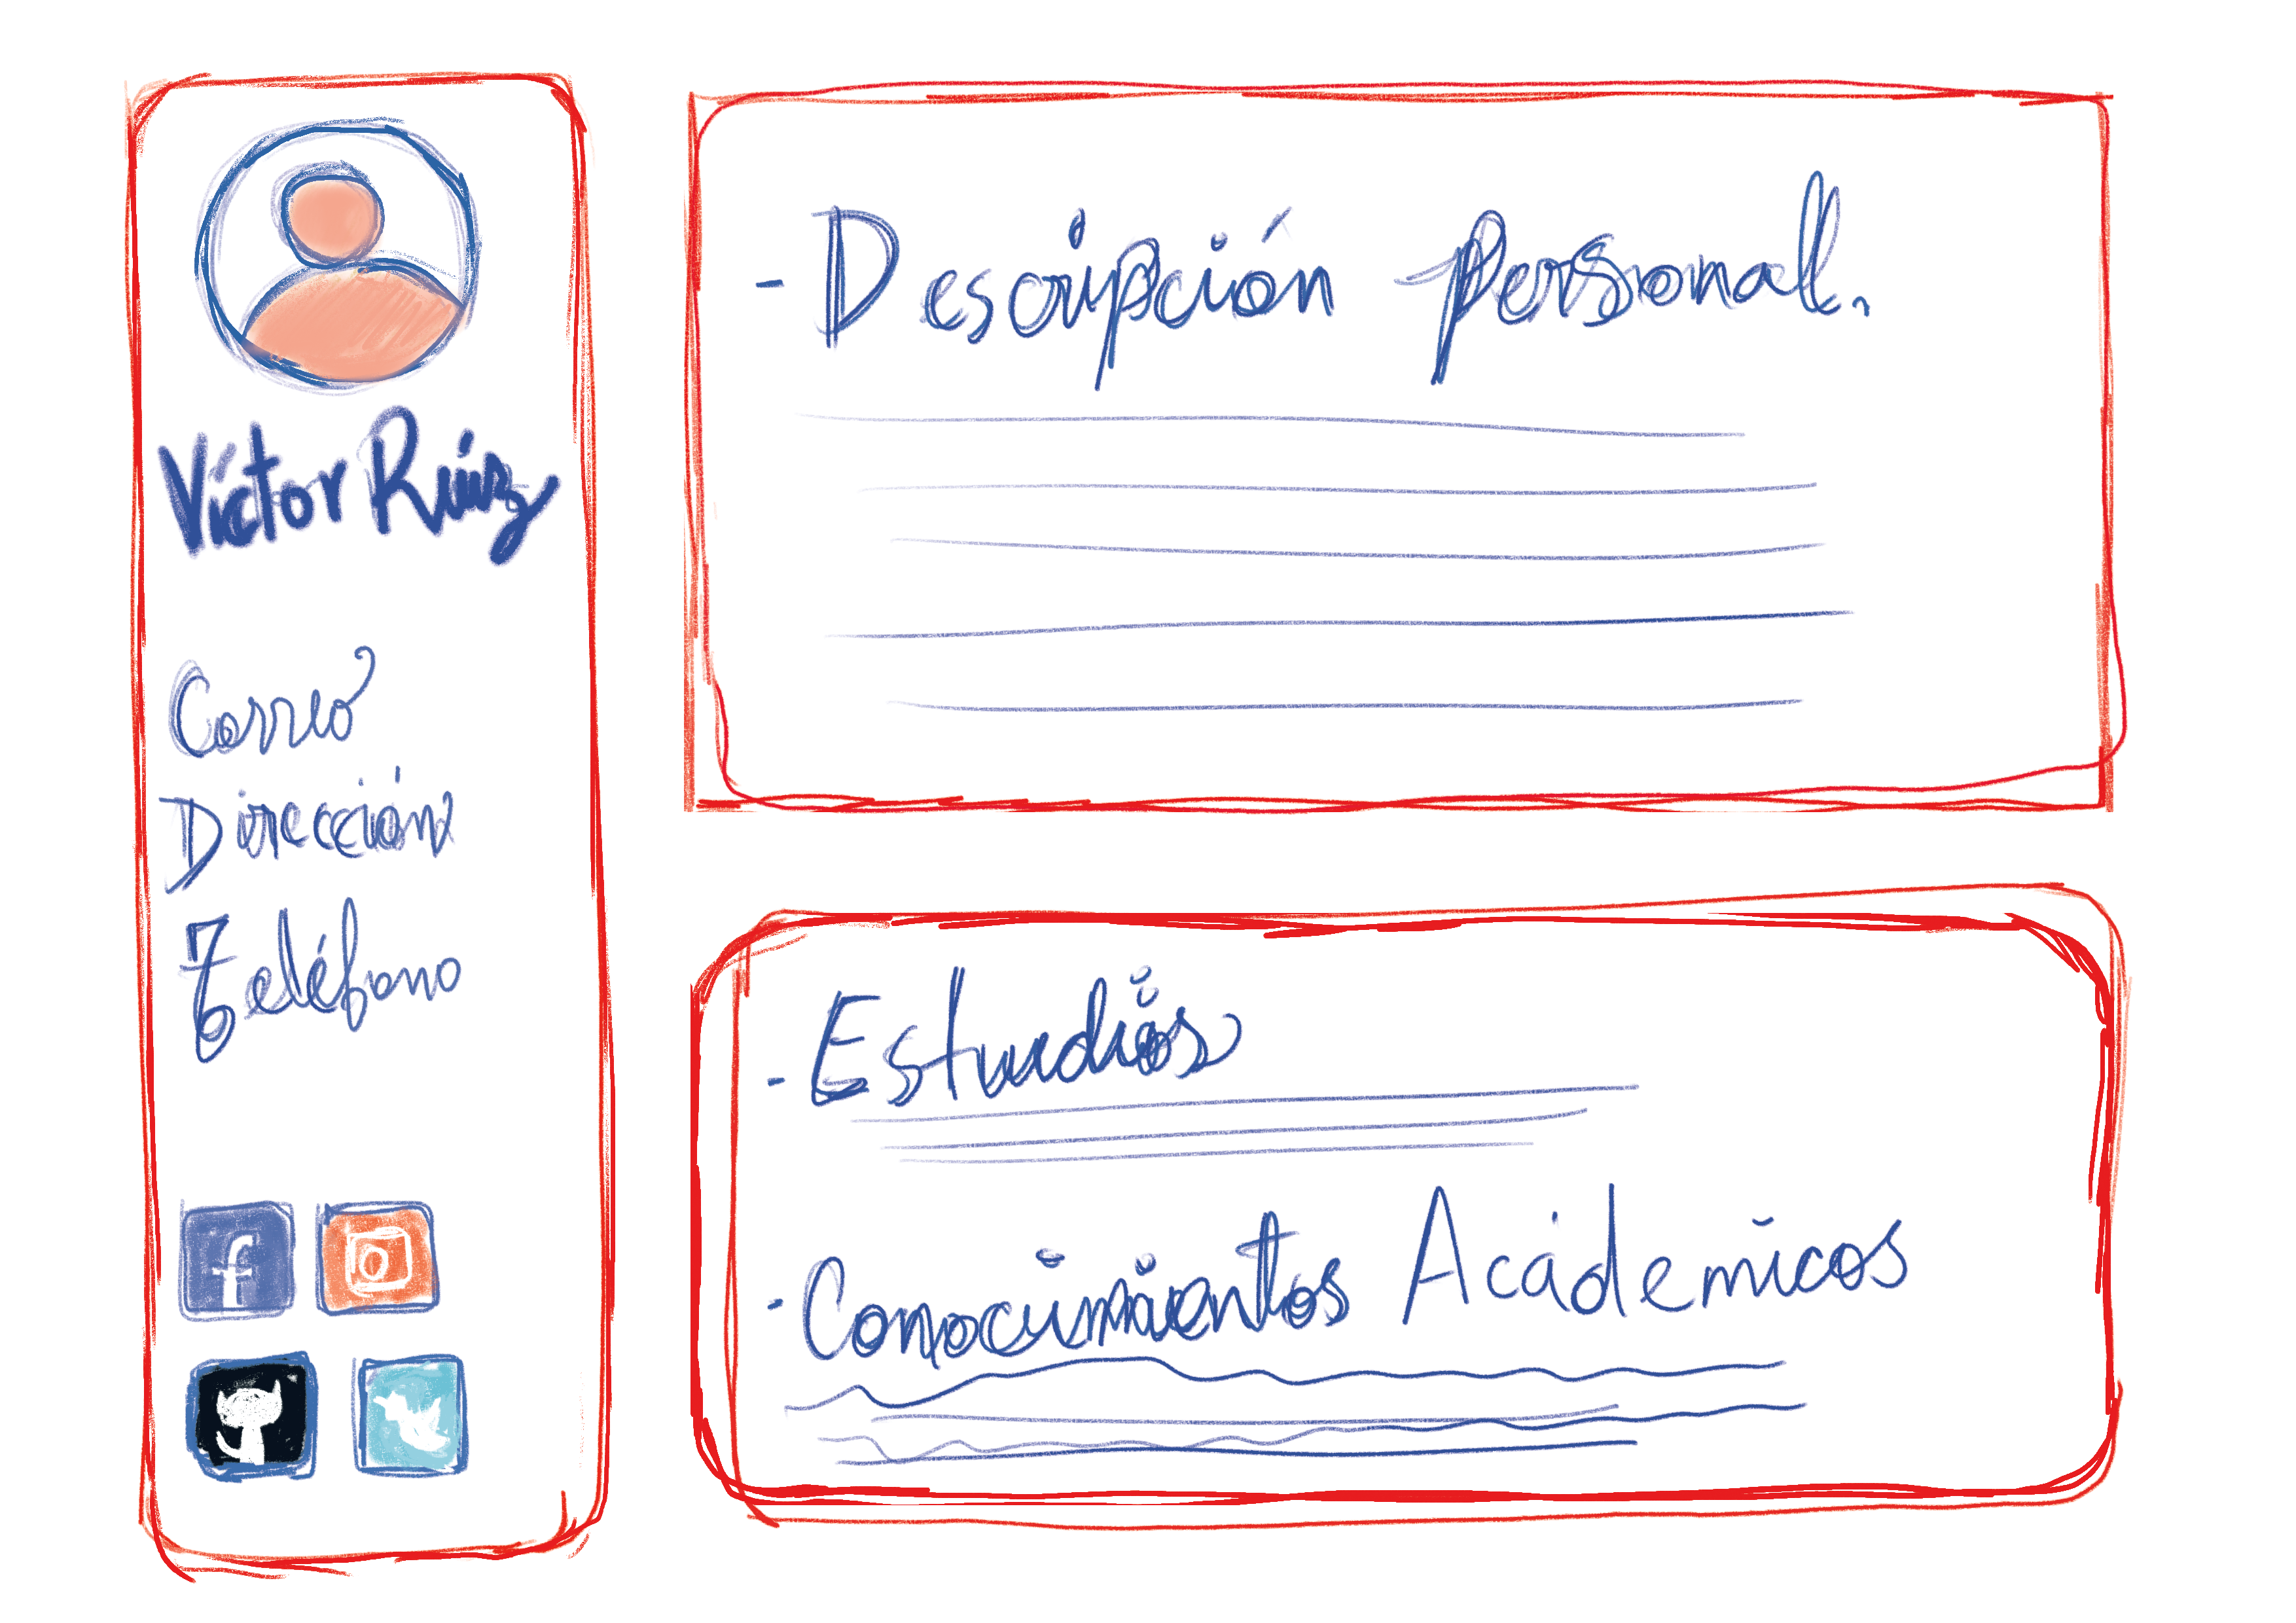 Víctor Ruíz
Correo
Dirección
Teléfono
f
- Descripción personal.
- Estudios
- Conocimientos Académicos